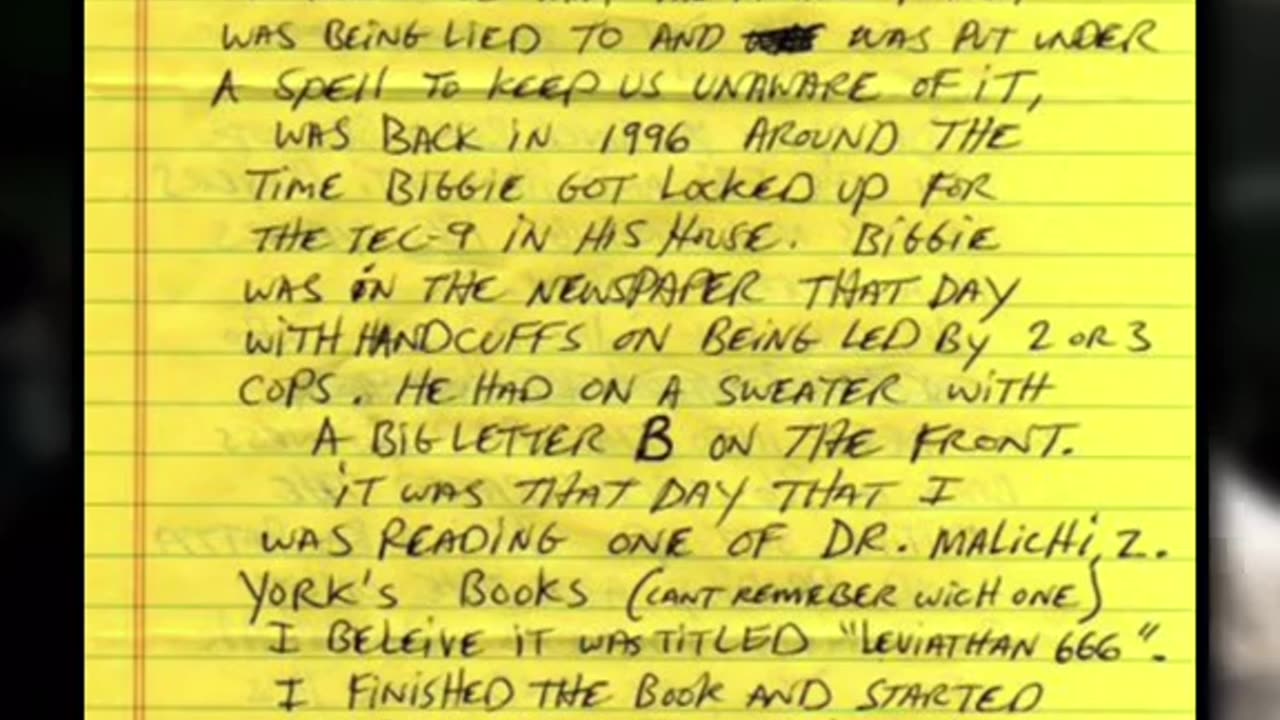 WAS BEING LIED TO AND WAS PUT UNDER
A SPELL TO KEEP US UNAWARE OF IT,
WAS BACK IN 1996 AROUND THE
TIME BIGGIE GOT LOCKED UP FOR
THE TEC-9 IN HIS HOUSE. BIGGIE
WAS ON THE NEWSPAPER THAT DAY
WITH HANDCUFFS ON BEING LED BY 2 OR 3
COPS. HE HAD ON A SWEATER WITH
A BIG LETTER B ON THE FRONT.
IT WAS THAT DAY THAT I
WAS READING ONE OF DR. MALICHI Z.
YORK'S BOOKS (CANT REMEBER WICH ONE)
I BELEIVE IT WAS TITLED "LEVIATHAN 666".
I FINISHED THE BOOK AND STARTED